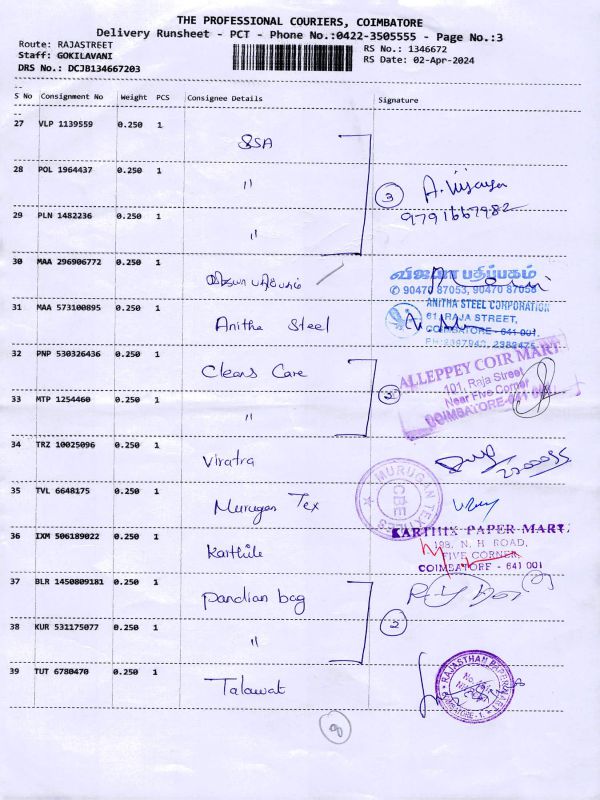 THE PROFESSIONAL COURIERS, COIMBATORE
Delivery Runsheet - PCT - Phone No.:0422-3505555 - Page No.:3
Route: RAJASTREET
Staff: GOKILAVANI
DRS No.: DCJB134667203
RS No.: 1346672
RS Date: 02-Apr-2024
S No Consignment No Weight PCS Consignee Details Signature
27 VLP 1139559 0.250 1
SSA
28 POL 1964437 0.250 1
"
3
A. Vijaya
29 PLN 1482236 0.250 1
9791667982
"
30 MAA 296906772 0.250 1
விஜயா பதிப்பகம்
விஜயா பதிப்பகம்
✆ 90470 87053, 90470 87058
31 MAA 573100895 0.250 1
Anitha Steel
ANITHA STEEL CORPORATION
61, RAJA STREET,
COIMBATORE - 641 001.
32 PNP 530326436 0.250 1
Cleans Care
ALLEPPEY COIR MART
101, Raja Street
Near Five Corner
COIMBATORE-641 001
33 MTP 1254460 0.250 1
"
2
34 TRZ 10025096 0.250 1
Viratra
35 TVL 6648175 0.250 1
Murugan Tex
MURUGAN TEXTILES
CBE
36 IXM 506189022 0.250 1
Karthik
KARTHIK PAPER MART.
108, N. H ROAD,
FIVE CORNER,
COIMBATORE - 641 001
37 BLR 1450809181 0.250 1
Pandian bag
38 KUR 531175077 0.250 1
"
2
39 TUT 6780470 0.250 1
Talawat
RAJASTHAN PAPER MART
COIMBATORE - 1.